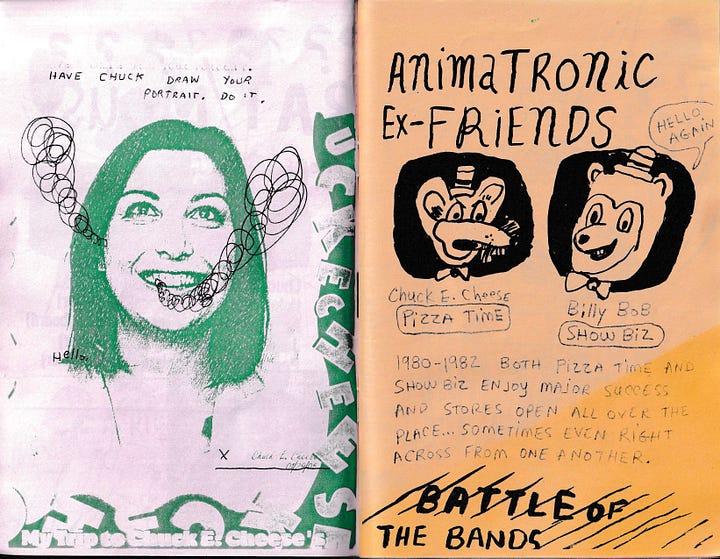 HAVE CHUCK DRAW YOUR
PORTRAIT. DO IT.
Hello.
X Chuck E. Cheese
UCK E CHEESE
My Trip to Chuck E. Cheese's
ANIMATRONIC
EX-FRIENDS
HELLO
AGAIN
Chuck E. Cheese
PIZZA TIME
Billy BoB
SHOW BIZ
1980-1982 BOTH PIZZA TIME AND
SHOW BIZ ENJOY MAJOR SUCCESS
AND STORES OPEN ALL OVER THE
PLACE... SOMETIMES EVEN RIGHT
ACROSS FROM ONE ANOTHER.
BATTLE OF
THE BANDS